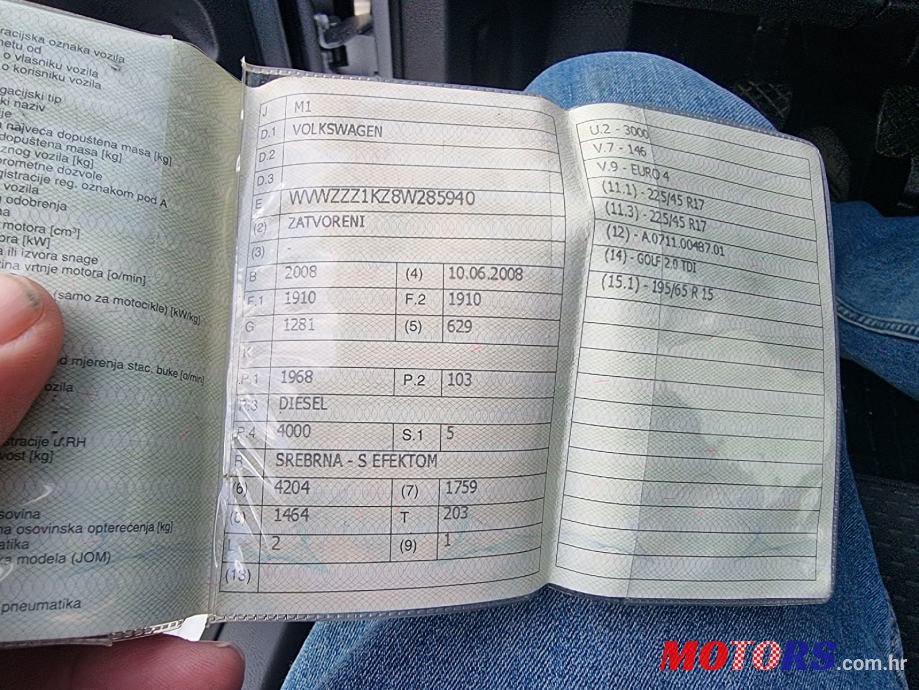 acijska oznaka vozila
metu od
o vlasniku vozila
o korisniku vozila
gacijski tip
ki naziv
je
najveća dopuštena masa [kg]
dopuštena masa [kg]
znog vozila [kg]
prometne dozvole
gistracije reg. oznakom pod A
vozila
g odobrenja
na
motora [cm³]
ora [kW]
a ili izvora snage
zina vrtnje motora [o/min]
(samo za motocikle) [kW/kg]
od mjerenja stac. buke [o/min]
vozila
stracije u RH
vost [kg]
osovina
na osovinska opterećenja [kg]
matika
ka modela (JOM)
pneumatika
J M1
D.1 VOLKSWAGEN
D.2
D.3
E WVWZZZ1KZ8W285940
(2) ZATVORENI
(3) -
B 2008 (4) 10.06.2008
F.1 1910 F.2 1910
G 1281 (5) 629
K
P.1 1968 P.2 103
P.3 DIESEL
P.4 4000 S.1 5
R SREBRNA - S EFEKTOM
(6) 4204 (7) 1759
(8) 1464 T 203
L 2 (9) 1
(13)
U.2 - 3000
V.7 - 146
V.9 - EURO 4
(11.1) - 225/45 R17
(11.3) - 225/45 R17
(12) - A.0711.00487.01
(14) - GOLF 2.0 TDI
(15.1) - 195/65 R 15
MOTORS.com.hr